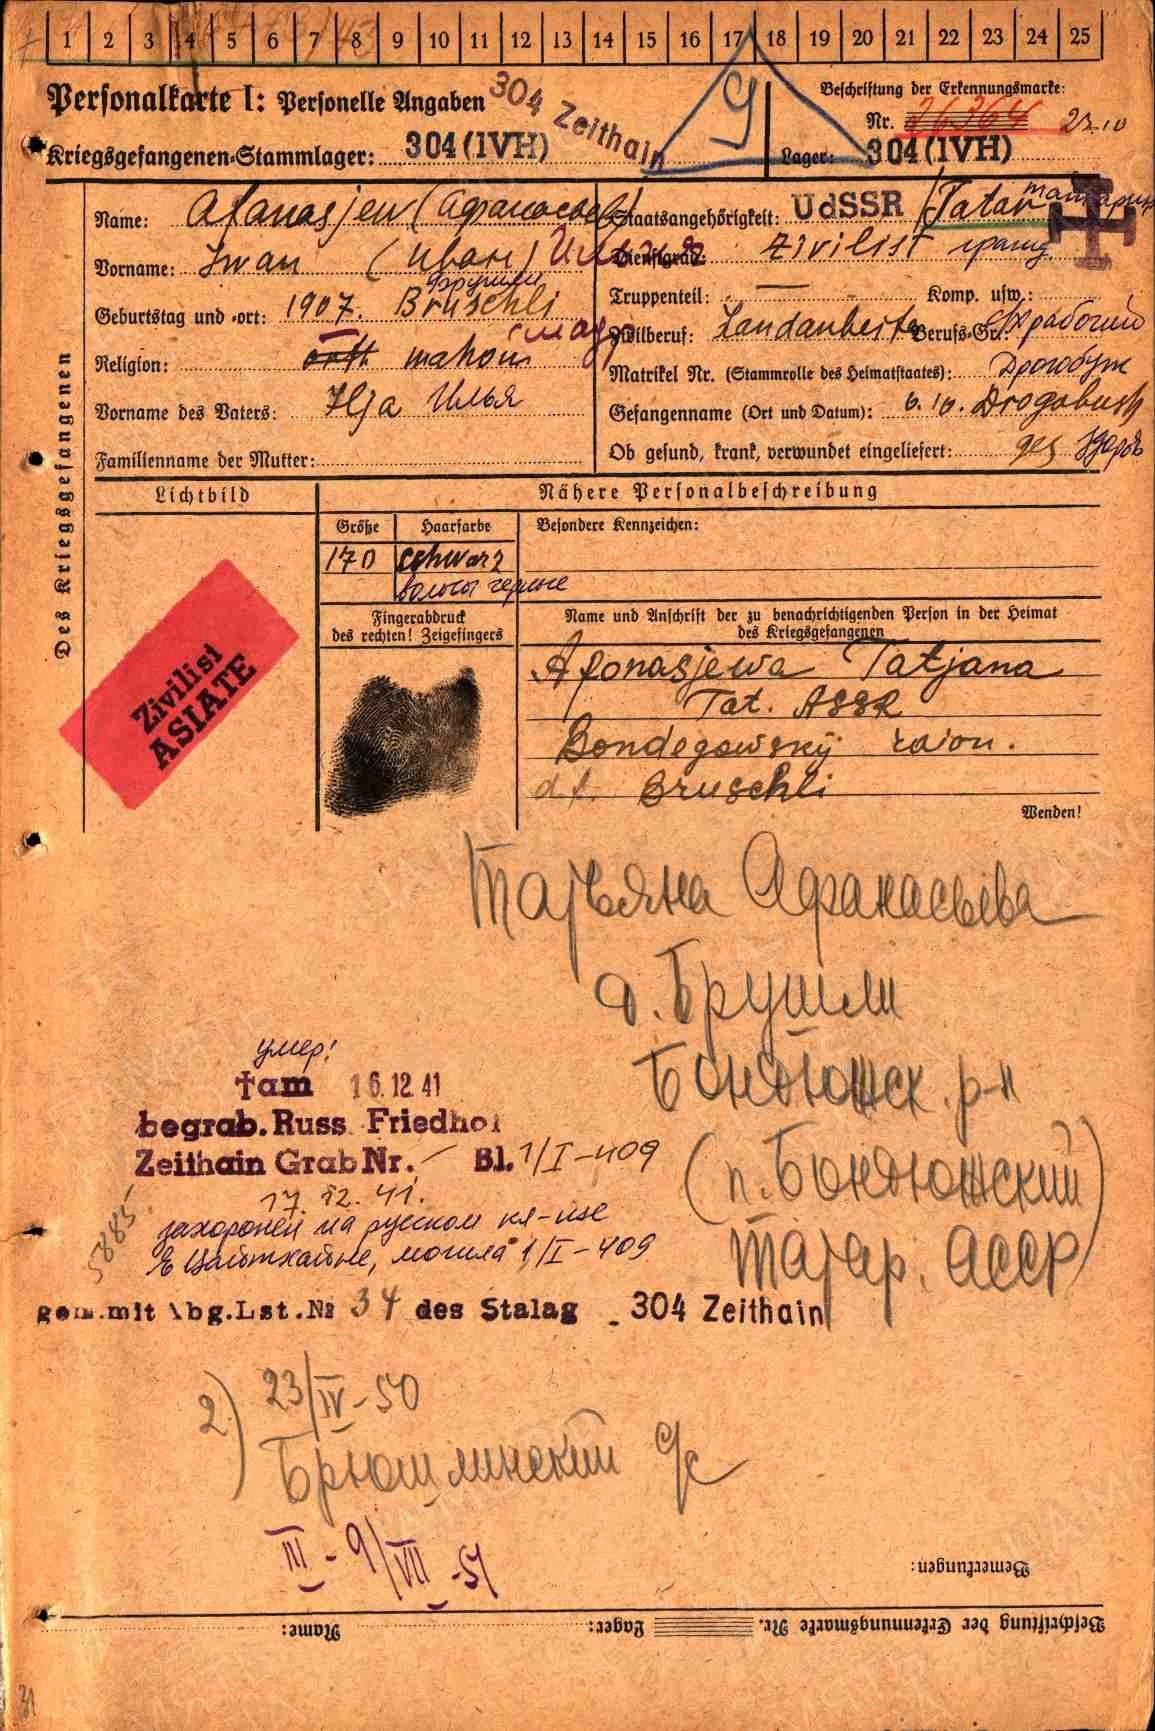 1 2 3 4 5 6 7 8 9 10 11 12 13 14 15 16 17 18 19 20 21 22 23 24 25
Personalkarte I: Personelle Angaben
304 Zeithain
Beschriftung der Erkennungsmarke:
Nr. 26264 23.10
Kriegsgefangenen-Stammlager: 304 (IVH)
Lager: 304 (IVH)
Des Kriegsgefangenen
Name: Afanasjew (Афанасьев)
Vorname: Iwan (Иван) Ильич
Geburtstag und -ort: 1907. Bruschli
Брушли
Religion: orth mahom
Vorname des Vaters: Ilja Илья
Familienname der Mutter:
Staatsangehörigkeit: UdSSR /Tatar татарин
Dienstgrad: Zivilist гражд.
Truppenteil: — Komp. usw.:
Zivilberuf: Landarbeiter Berufs-Gr.: с/х рабочий
Matrikel Nr. (Stammrolle des Heimatstaates): Дрогобуж
Gefangenname (Ort und Datum): 6.10. Drogobusch
Ob gesund, krank, verwundet eingeliefert: ges здоров
Lichtbild
Nähere Personalbeschreibung
Größe Haarfarbe Besondere Kennzeichen:
170 schwarz
волосы черные
Fingerabdruck
des rechten! Zeigefingers
Name und Anschrift der zu benachrichtigenden Person in der Heimat
des Kriegsgefangenen
Afonasjewa Tatjana
Tat. ASSR
Bondegowskÿ raion.
df. Bruschli
Wenden!
Zivilist
ASIATE
Татьяна Афанасьева
д. Брушли
Бондюжск. р-н
(п. Бондюжский)
Татар. АССР
умер!
†am 16.12.41
begrab. Russ. Friedhof
Zeithain Grab Nr. – Bl. 1/I-409
17.12.41.
захоронен на русском кл-ще
в Цайтхайне, могила 1/I-409
5885
gem. mit Abg.Lst.№ 34 des Stalag 304 Zeithain
2) 23/IV-50
Брюшлинский с/с
III - 9/VII-51
Bemerkungen:
Name: Lager: Beschriftung der Erkennungsmarke Nr.
31